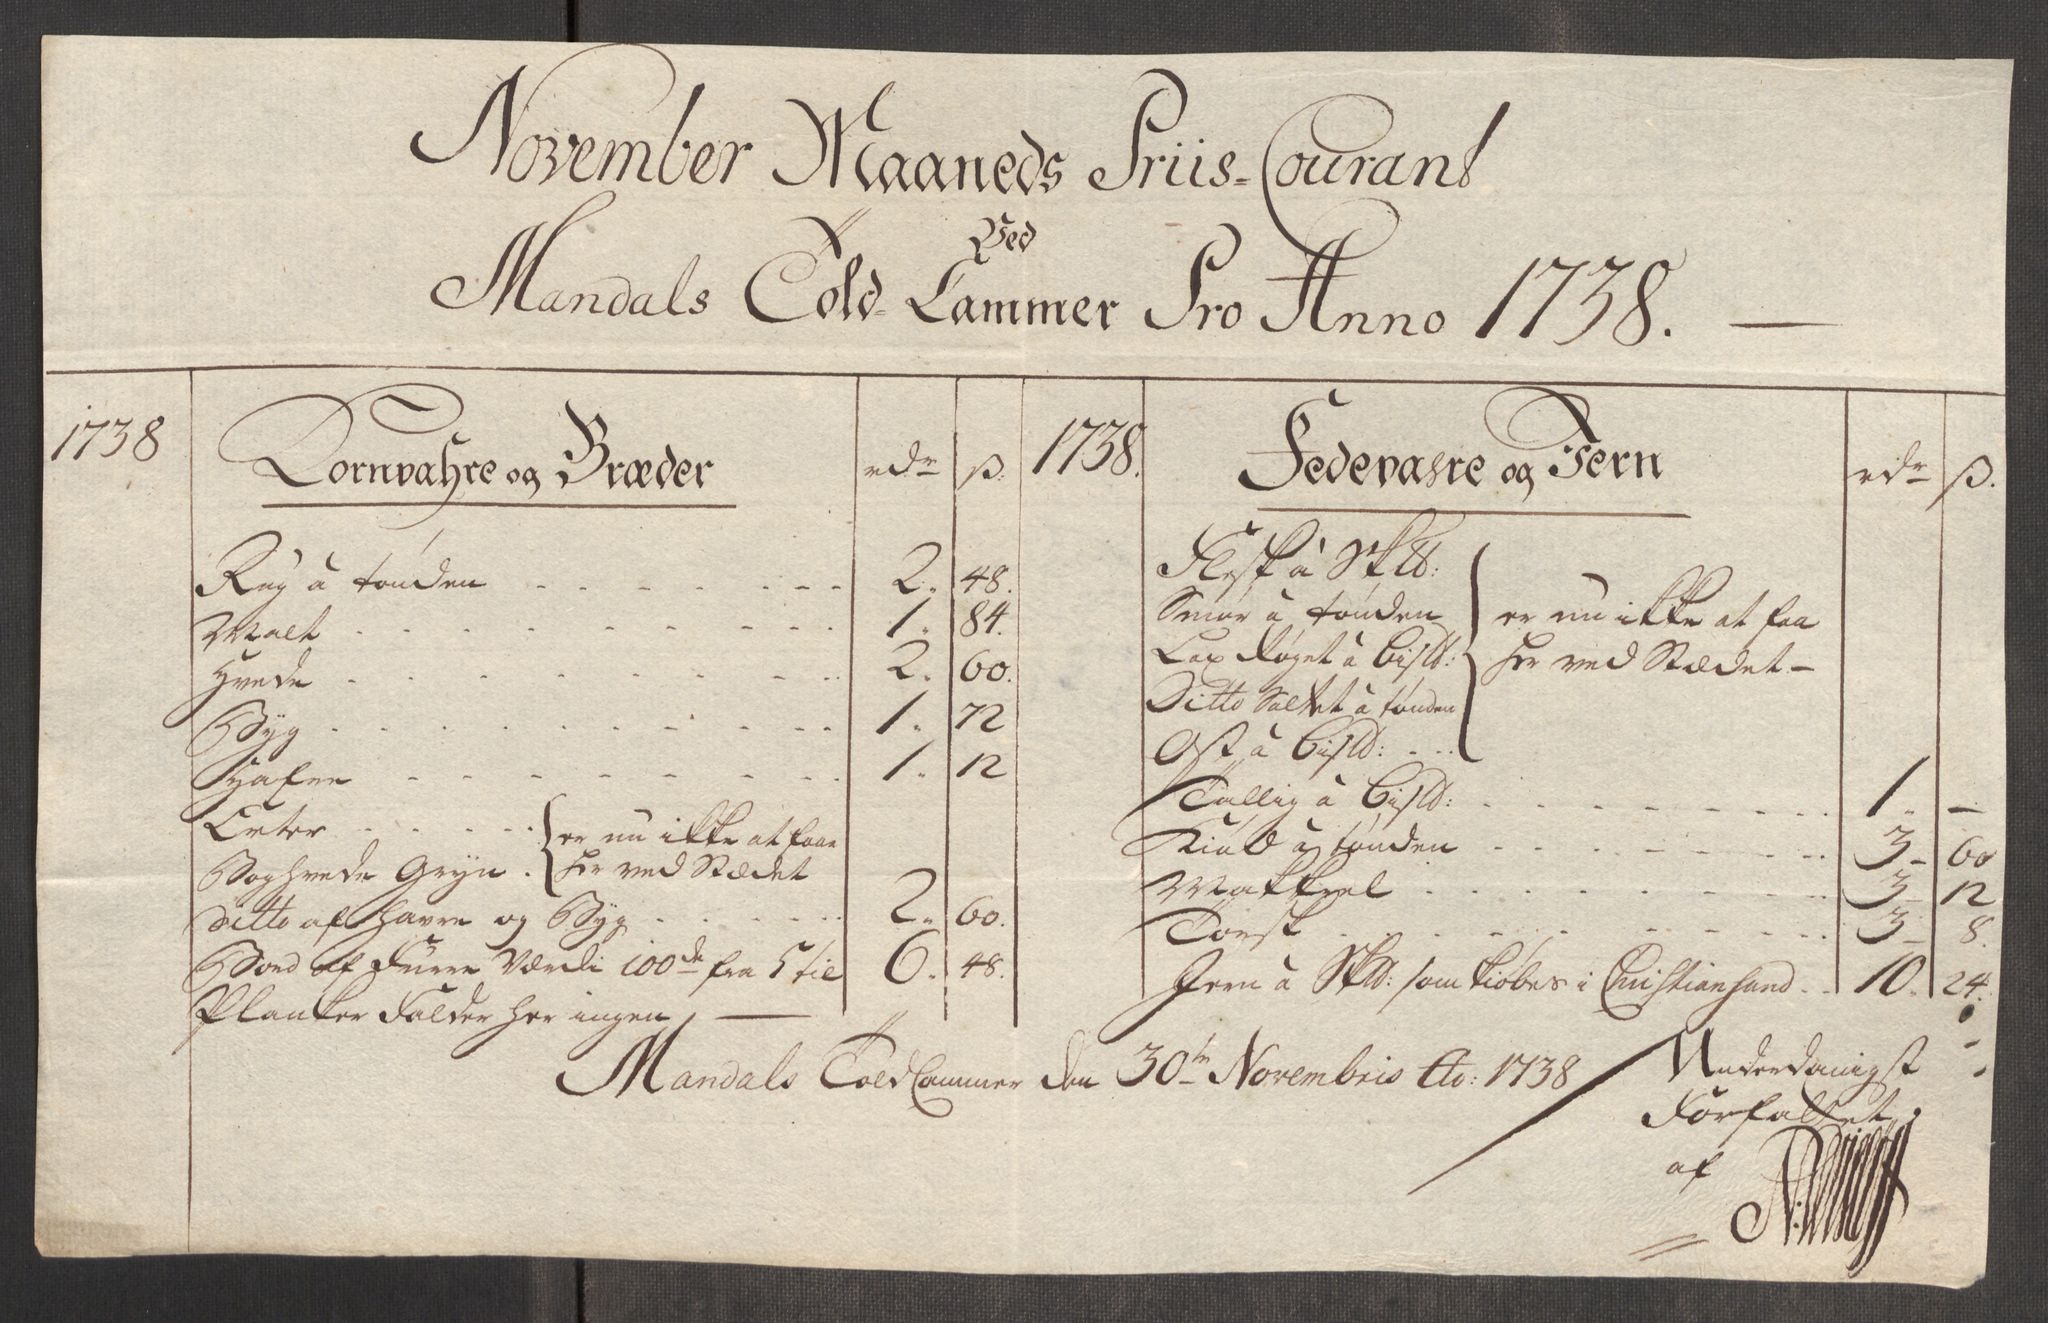 November Maaneds Priis-Courant
Ved
Mandals Told-Cammer Pro Anno 1738.
1738 Cornvahre og Bræder rdr ß.
Rug â tønden 2. 48.
Malt 1. 84.
Hvede 2. 60.
Byg 1. 72
Hafre 1. 12
Erter
Boghvede Gryn
er nu ikke at faae
her ved Stædet
Ditto af Havre og Byg 2. 60.
Bord af Furre Værdi 100de fra 5 til 6. 48.
Planker Falder her ingen
1738. Fedevahre og Jern rdr ß.
Flesk â Sk℔:
Smør â tønden
Lax Røget â Bis℔:
Ditto Saltet â tønden
Ost â Bis℔:
er nu ikke at faa
her ved Stædet
Tallig â Bis℔: 1. -
Kiød â tønden 3 - 60
Makkrel 3 - 12
Torsk 3 - 8.
Jern â Sk℔: som kiøbes i Christiansand 10. 24.
Mandals Told Cammer den 30te Novembris Ao: 1738
Underdanigst
Forfattet
af